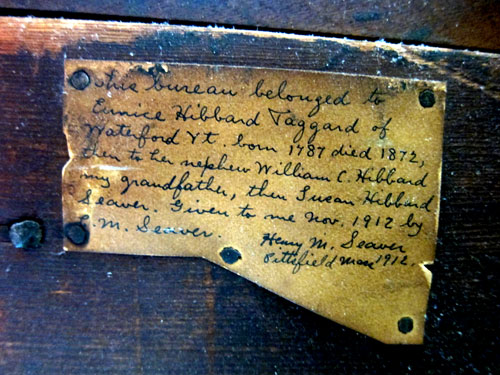 This bureau belonged to
Eunice Hibbard Taggard of
Waterford Vt. born 1787 died 1872,
then to her nephew William C. Hibbard
my grandfather, then Susan Hibbard
Seaver. Given to me Nov. 1912 by
S. M. Seaver.
Henry M. Seaver
Pittsfield Mass 1912.